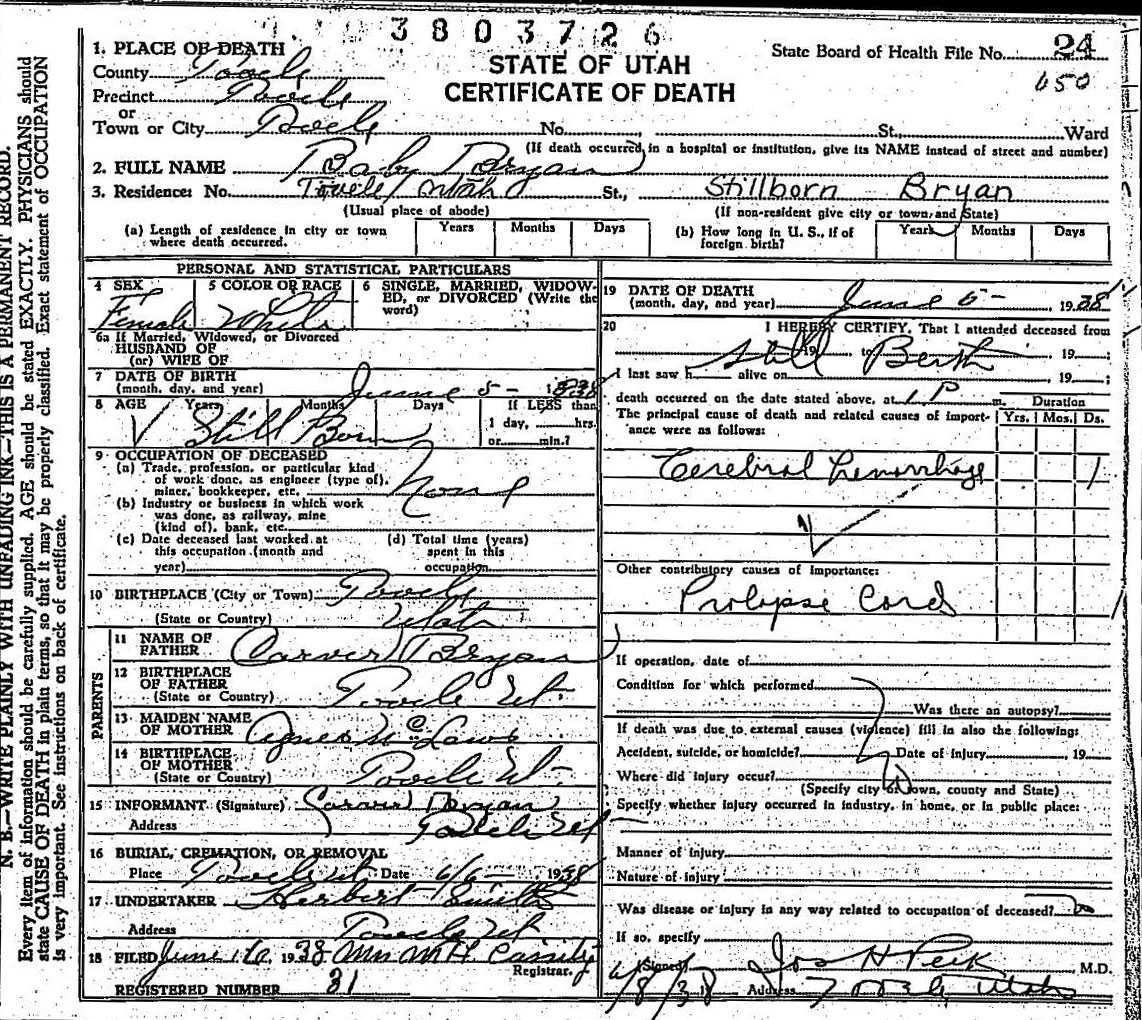 3803726
1. PLACE OF DEATH
State Board of Health File No. 24
650
STATE OF UTAH
CERTIFICATE OF DEATH
County Tooele
Precinct Tooele
or
Town or City Tooele No. , St., Ward
(If death occurred in a hospital or institution, give its NAME instead of street and number)
2. FULL NAME Baby Bryan
3. Residence: No. Tooele Utah St., Stillborn Bryan
(Usual place of abode) (If non-resident give city or town, and State)
(a) Length of residence in city or town where death occurred. Years Months Days
(b) How long in U. S., if of foreign birth? Years Months Days
PERSONAL AND STATISTICAL PARTICULARS
4 SEX 5 COLOR OR RACE 6 SINGLE, MARRIED, WIDOWED, or DIVORCED (Write the word)
Female White
6a If Married, Widowed, or Divorced
HUSBAND OF
(or) WIFE OF
7 DATE OF BIRTH
(month, day, and year) June 5- 1938
8 AGE Years Months Days If LESS than
1 day, hrs.
or min.?
Still Born
9 OCCUPATION OF DECEASED
(a) Trade, profession, or particular kind
of work done, as engineer (type of),
miner, bookkeeper, etc. None
(b) Industry or business in which work
was done, as railway, mine
(kind of), bank, etc.
(c) Date deceased last worked at
this occupation (month and
year)
(d) Total time (years)
spent in this
occupation
10 BIRTHPLACE (City or Town) Tooele
(State or Country) Utah
PARENTS
11 NAME OF
FATHER Carver Bryan
12 BIRTHPLACE
OF FATHER
(State or Country) Tooele Ut.
13 MAIDEN NAME
OF MOTHER Agnes McLaws
14 BIRTHPLACE
OF MOTHER
(State or Country) Tooele Ut.
15 INFORMANT (Signature) Carver Bryan
Address Tooele Ut
16 BURIAL, CREMATION, OR REMOVAL
Place Tooele Ut Date 6/6- 1938
17 UNDERTAKER Herbert Smith
Address Tooele Ut
18 FILED June 10, 1938 M H Cassity
Registrar.
REGISTERED NUMBER 31
19 DATE OF DEATH
(month, day, and year) June 5- 1938
20 I HEREBY CERTIFY, That I attended deceased from
19 to , 19 ;
Still Berth
I last saw h alive on , 19 ;
death occurred on the date stated above, at 1 P m. Duration
The principal cause of death and related causes of importance were as follows: Yrs. Mos. Ds.
Cerebral hemorrhage 1
Other contributory causes of importance:
Prolapse Cord
If operation, date of
Condition for which performed
Was there an autopsy?
If death was due to external causes (violence) fill in also the following:
Accident, suicide, or homicide? Date of injury 19
Where did injury occur?
(Specify city or town, county and State)
Specify whether injury occurred in industry, in home, or in public place:
Manner of injury
Nature of injury
Was disease or injury in any way related to occupation of deceased? no
If so, specify
(Signed) Jos H Peck M.D.
6/8/38 Address Tooele, Utah
N. B.—WRITE PLAINLY WITH UNFADING INK—THIS IS A PERMANENT RECORD.
Every item of information should be carefully supplied. AGE should be stated EXACTLY. PHYSICIANS should
state CAUSE OF DEATH in plain terms, so that it may be properly classified. Exact statement of OCCUPATION
is very important. See instructions on back of certificate.